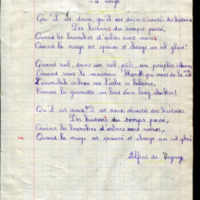 La neige
Qu'il est doux, qu'il est doux d'écouter des histoires
Des histoires du temps passé,
Quand les branches d'arbres sont noires,
Quand la neige est épaisse et charge un sol glacé!
Quand seul dans un ciel pâle un peuplier s'élance,
Quand sous le manteau blanc qui vient de le
L'immobile corbeau sur l'arbre se balance,
Comme la girouette au bout d'un long clocher!
Qu'il est doux, d'écouter des histoires,
Des histoires du temps passé,
Quand les branches d'arbres sont noires,
Quand la neige est épaisse et charge un sol glacé!
Alfred de Vigny